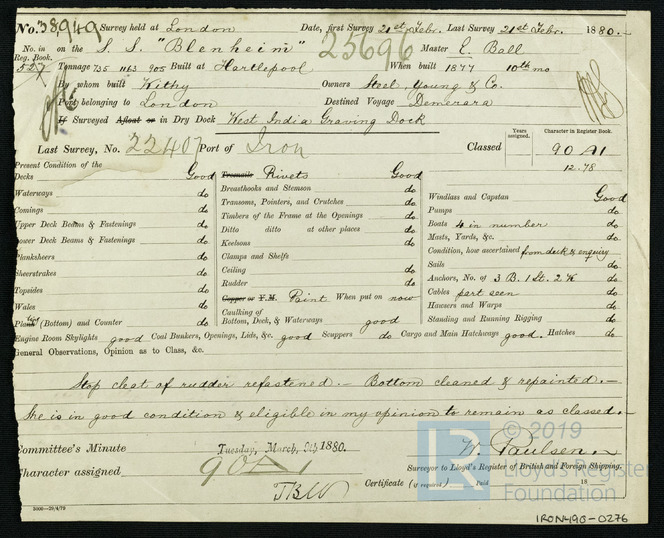 No. 38949 Survey held at London Date, first Survey 21st Febr. Last Survey 21st Febr. 1880.
No. in Reg. Book. on the S. S. "Blenheim" 25696 Master E. Ball
527 Tonnage 735 1163 905 Built at Hartlepool When built 1877 10th mo
By whom built Withy Owners Steel, Young & Co.
Port belonging to London Destined Voyage Demerara
If Surveyed Afloat or in Dry Dock West India Graving Dock
Last Survey, No. 22407 Port of Iron Classed
Years assigned. Character in Register Book.
90 A1
12.78
Present Condition of the
Decks Good
Waterways do
Comings do
Upper Deck Beams & Fastenings do
Lower Deck Beams & Fastenings do
Planksheers do
Sheerstrakes do
Topsides do
Wales do
(Bottom) and Counter do
Treenails Rivets Good
Breasthooks and Stemson do
Transoms, Pointers, and Crutches do
Timbers of the Frame at the Openings do
Ditto ditto at other places do
Keelsons do
Clamps and Shelfs
Ceiling do
Rudder do
Copper or Y.M. Paint When put on now
Caulking of
Bottom, Deck, & Waterways good
Windlass and Capstan Good
Pumps do
Boats 4 in number do
Masts, Yards, &c. do
Condition, how ascertained from deck & enquiry
Sails do
Anchors, No. of 3 B. 1 St. 2 K do
Cables part seen do
Hawsers and Warps do
Standing and Running Rigging do
Engine Room Skylights good Coal Bunkers, Openings, Lids, &c. good Scuppers do Cargo and Main Hatchways good. Hatches do
General Observations, Opinion as to Class, &c.
Stop cleat of rudder refastened.— Bottom cleaned & repainted.—
She is in good condition & eligible in my opinion to remain as classed.—
Committee's Minute Tuesday, March, 9th, 1880.
Character assigned 90 A1
W. Paulsen
Surveyor to Lloyd's Register of British and Foreign Shipping.
Certificate (if required) Paid 18
5000—29/4/79
© 2019
Lloyd's Register
Foundation
IRON490-0276